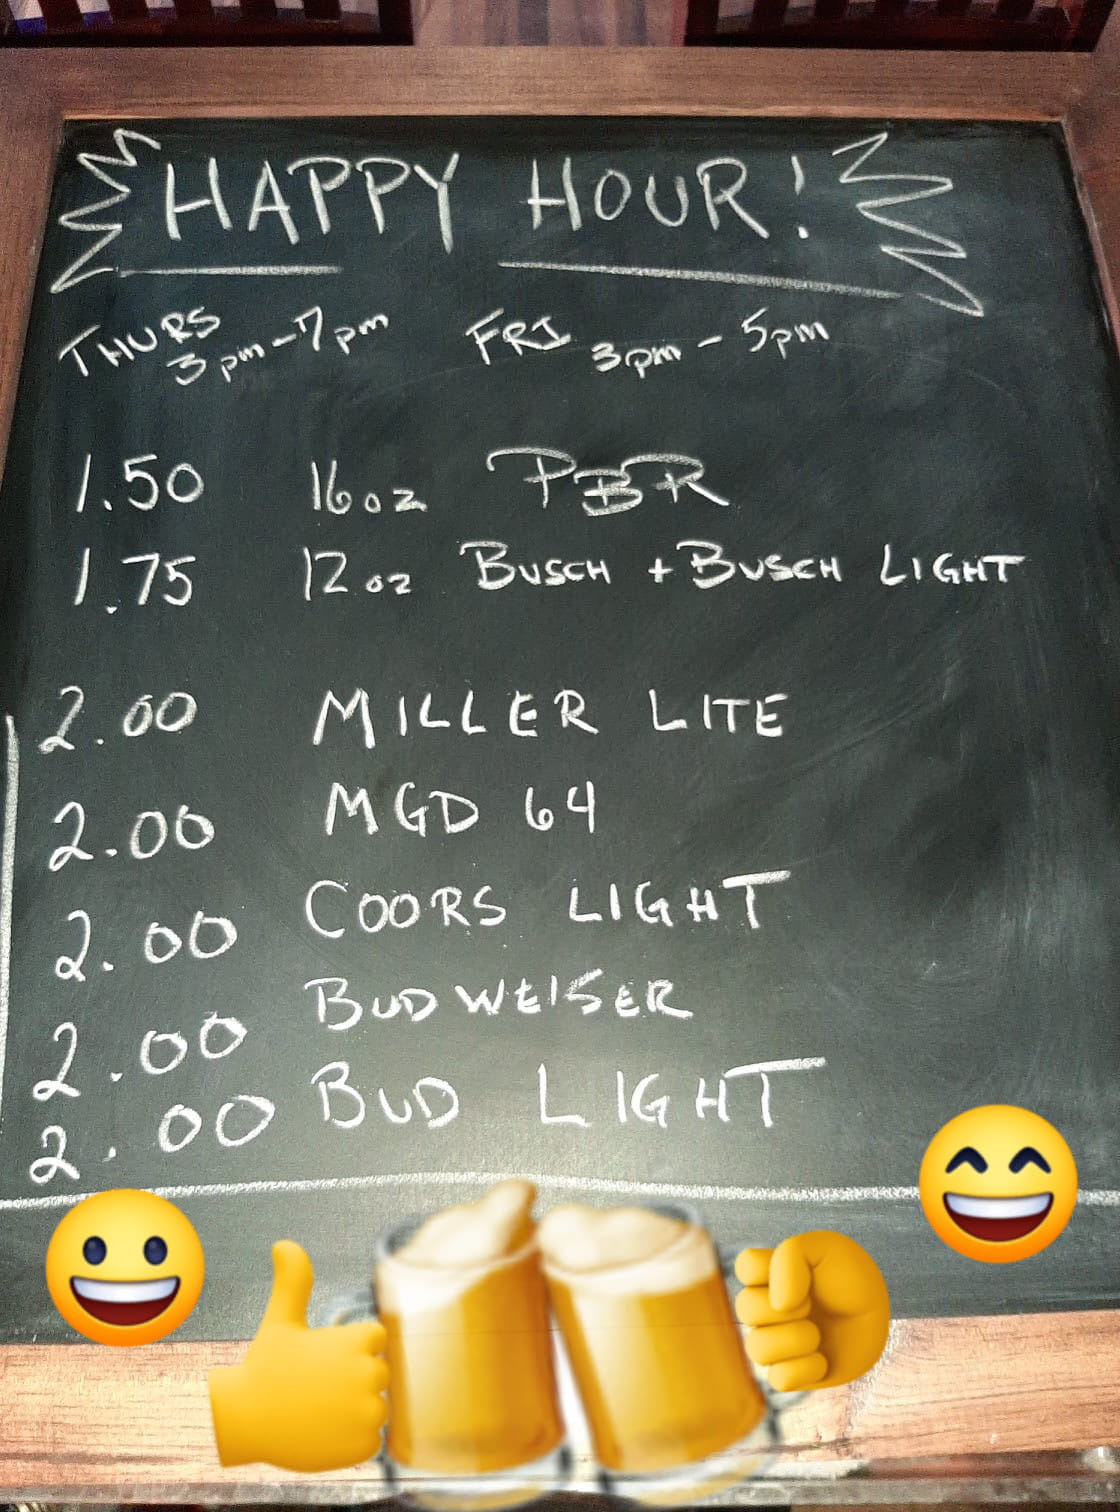 HAPPY HOUR!
THURS 3pm-7pm FRI 3pm - 5pm
1.50 16oz PBR
1.75 12oz BUSCH + BUSCH LIGHT
2.00 MILLER LITE
2.00 MGD 64
2.00 COORS LIGHT
2.00 BUDWEISER
2.00 BUD LIGHT